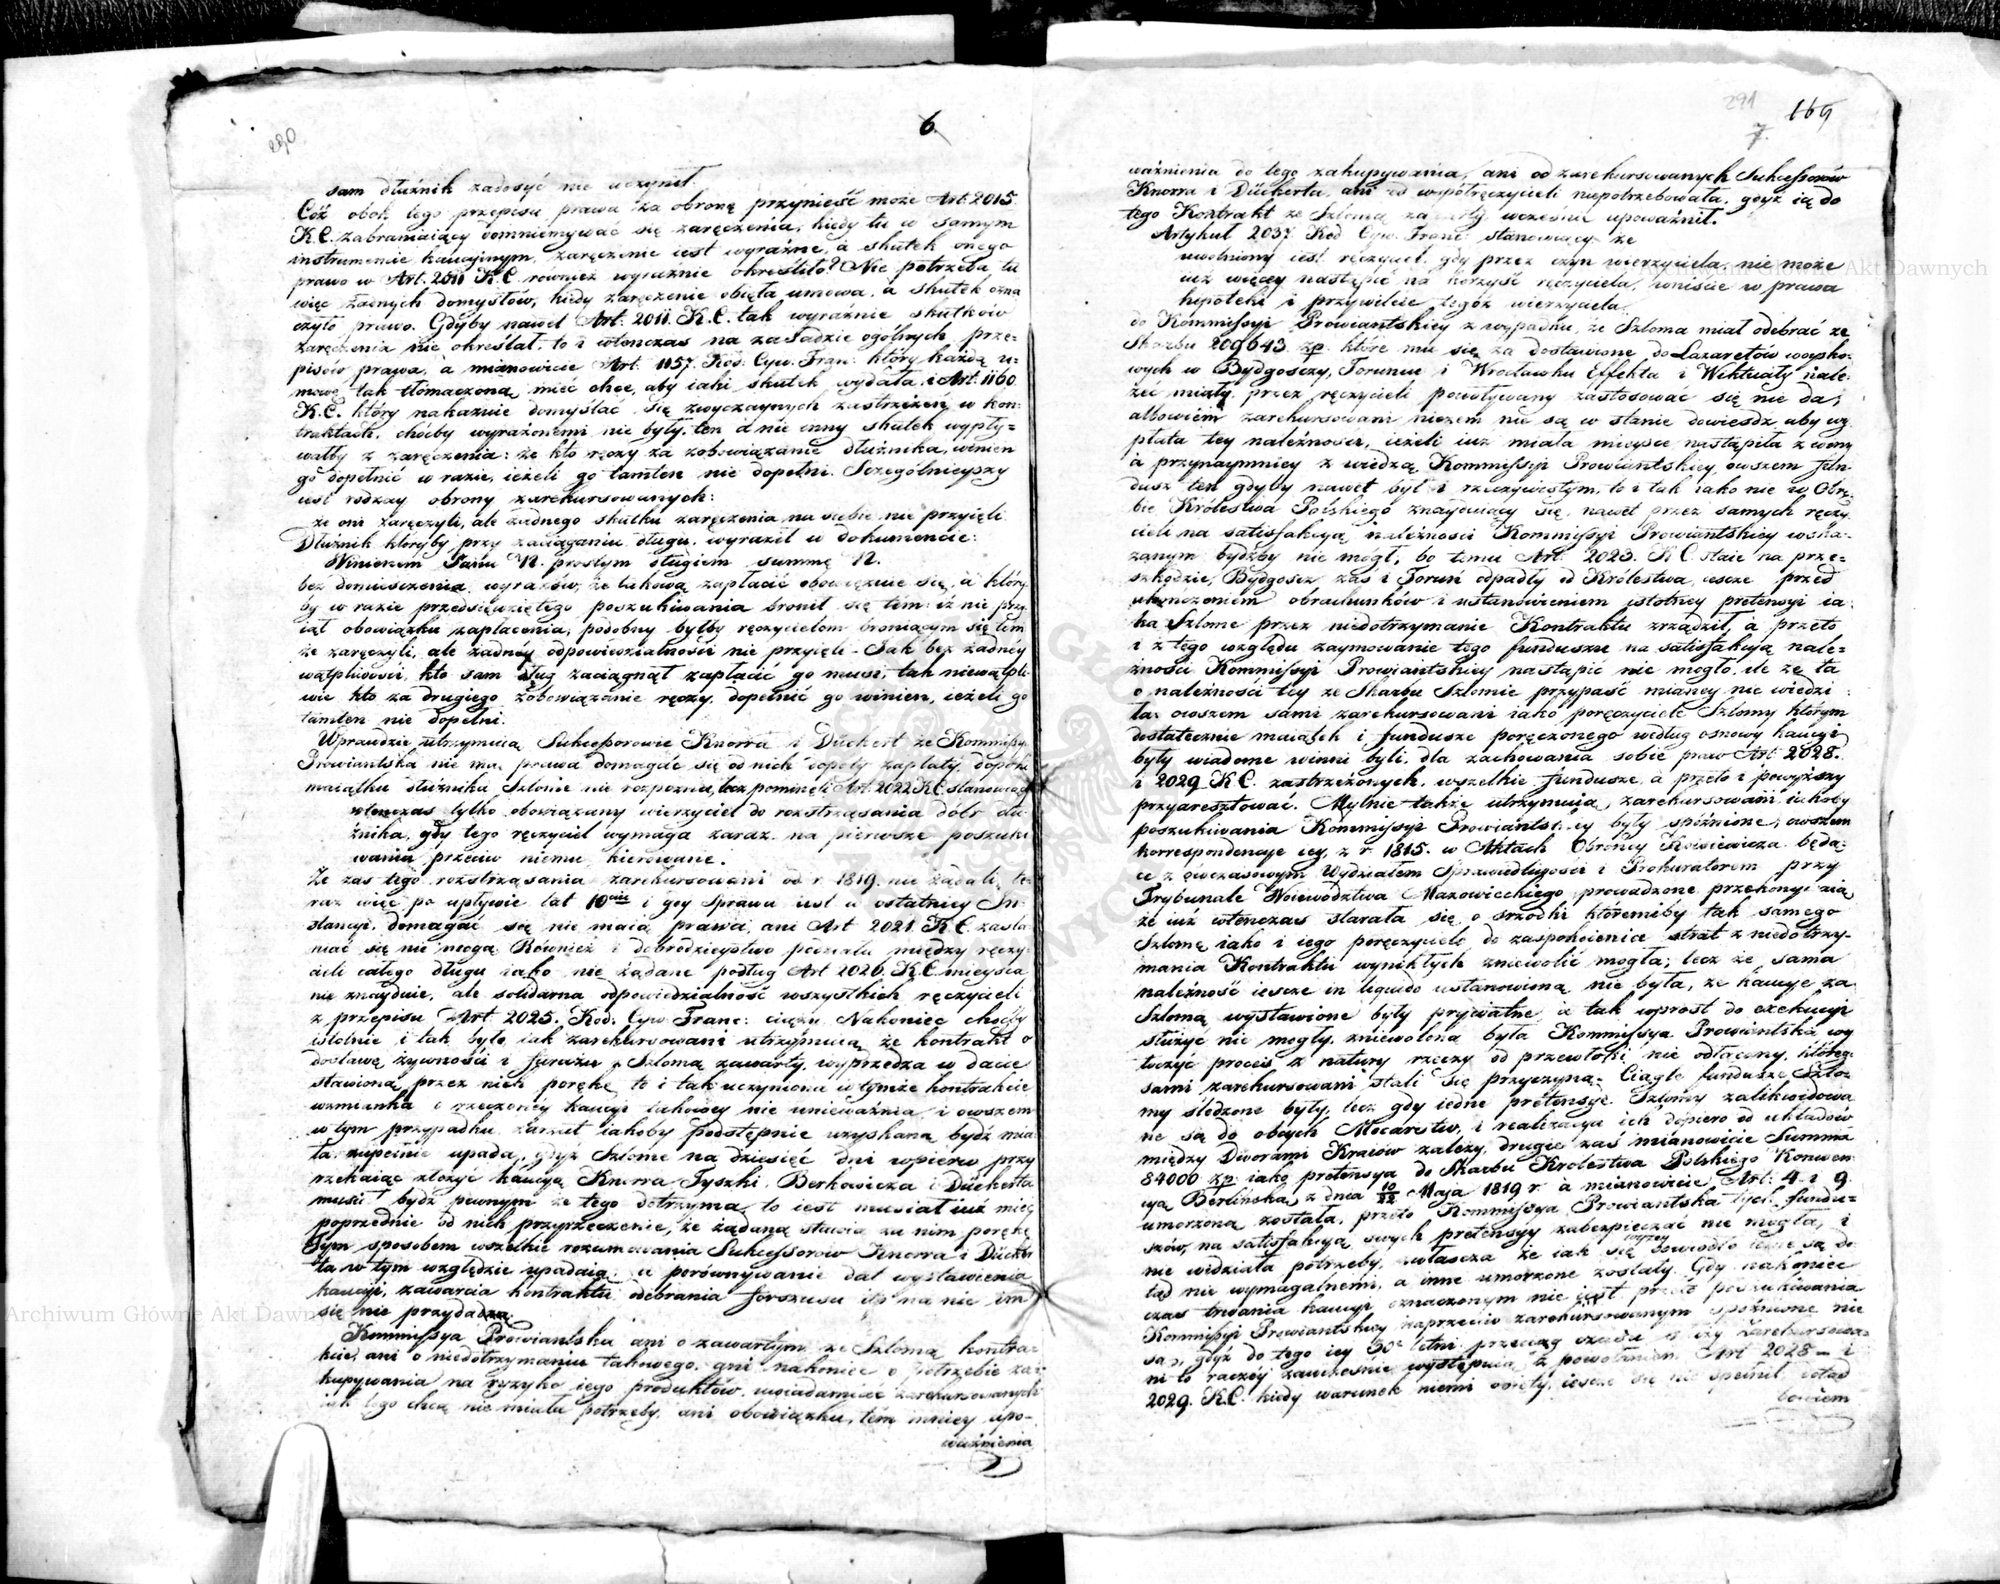 290
6
sam dłużnik zadosyć nie uczynił.
Cóż obok tego przepisu prawa za obronę przynieść może Art. 2015.
K.C. zabraniaiący domniemywać się zaręczenia, kiedy tu w samym
instrumencie kaucyinym, zaręczenie iest wyraźne, a skutek onego
prawo w Art. 2011 K.C. również wyraźnie określiło? Nie potrzeba tu
więc żadnych domysłów, kiedy zaręczenie obięła umowa, a skutek ozna
czyło prawo. Gdyby nawet Art. 2011. K.C. tak wyraźnie skutków
zaręczenia nie określał, to i wtenczas na zasadzie ogólnych prze-
pisów prawa, a mianowicie Art. 1157. Kod. Cyw. Fran: który każdą u-
mowę tak tłomaczoną mieć chce, aby iaki skutek wydała, i Art. 1160
K.C. który nakazuie domyślać się zwyczaynych zastrzeżeń w kon-
traktach, choćby wyrażonemi nie były, ten a nie inny skutek wypły-
wałby z zaręczenia: że kto ręczy za zobowiązanie dłużnika, winien
go dopełnić w razie, ieżeli go tamten nie dopełni. Szególnieyszy
iest rodzay obrony zarekursowanych:
że oni zaręczyli, ale żadnego skutku zaręczenia na siebie nie przyięli.
Dłużnik któryby przy zaciąganiu długu, wyraził w dokumencie:
Winienem Panu N. prostym długiem summę N.
bez domieszczenia wyrazów, że takową zapłacić obowiązuie się, a który
by w razie przedsięwziętego poszukiwania bronił się tem: iż nie przy
iął obowiązku zapłacenia, podobny byłby ręczycielom broniącym się tem
że zaręczyli, ale żadney odpowiedzialności nie przyięli. Jak bez żadney
wątpliwości, kto sam dług zaciągnął zapłacić go musi, tak niewątpli
wie kto za drugiego zobowiązanie ręczy, dopełnić go winien, ieżeli go
tamten nie dopełni.
Wprawdzie utrzymuią Sukcessorowie Knorra i Dückert że Kommissya
Prowiantska nie ma prawa domagać się od nich dopóty zapłaty, dopóki
maiątku dłużnika Szlomie nie rozpozna, lecz pominęli Art. 2022 K.C. stanowiący
wtenczas tylko obowiązany wierzyciel do rozstrząsania dóbr dłu
żnika, gdy tego ręczyciel wymaga zaraz na pierwsze poszuki
wania przeciw niemu kierowane.
Że zaś tego rozstrząsania zarekursowani od r. 1819 nie żądali, te-
raz więc po upływie lat 10ciu i gdy Sprawa iest w ostatniey In-
stancyi, domagać się nie maią prawa, ani Art. 2021. K.C. zasła
niać się nie mogą. Również i dobrodzieystwo podziału między ręczy-
cieli całego długu iako nie żądane podług Art. 2026. K.C. mieysca
nie znayduie, ale solidarna odpowiedzialność wszystkich ręczycieli
z przepisu Art. 2025. Kod: Cyw. Franc: ciąży. Nakoniec choćby
istotnie i tak było iak zarekursowani utrzymuią że kontrakt o
dostawę żywności i furażu z Szlomą zawarty, wyprzedza w dacie
stawioną przez nich porękę, to i tak uczyniona w tymże kontrakcie
wzmianka o rzeczoney kaucyi takowey nie unieważnia i owszem
w tym przypadku zarzut iakoby podstępnie uzyskaną bydź mia
ła, zupełnie upada, gdyż Szlome na dziesięć dni wpierw przy
rzekaiąc złożyć kaucyą Knorra Tyszki, Berkowicza i Dückerta
musił bydź pewnym że tego dotrzyma, to iest musiał iuż mieć
poprzednie od nich przyrzeczenie, że żądaną stawią za nim porękę.
Tym sposobem wszelkie rozumowania Sukcessorów Knorra i Dücker
ta w tym względzie upadaią: a porównywanie dat wystawienia
kaucyi, zawarcia kontraktu odebrania forszusu itp na nic im
się nie przydadzą.
Kommissya Prowiantska ani o zawartym ze Szlomą kontra-
kcie, ani o niedotrzymaniu takowego, ani nakoniec o potrzebie za-
kupywania na ryzyko iego produktów, uwiadamiać zarekursowanych
iak tego chcą nie miała potrzeby, ani obowiązku, tem mniey upo-
ważnienia
291
7.
169
ważnienia do tego zakupywania, ani od zarekursowanych Sukcessorów
Knorra i Dückerta, ani od współręczycieli niepotrzebowała, gdyż ią do
tego Kontrakt ze Szlomą zawarty wcześnie upoważnił.
Artykuł 2037. Kod. Cyw. Franc: stanowiący że
uwolniony iest ręczyciel, gdy przez czyn wierzyciela, nie może
iuż więcey nastąpić na korzyść ręczyciela, wniście w prawa
hipoteki i przywileie tegoż wierzyciela,
do Kommissyi Prowiantskiey z wypadku, że Szloma miał odebrać ze
Skarbu 209643 zp. które mu się za dostawione do Lazaretów woysko-
wych w Bydgoszczy, Toruniu i Wrocławku Effekta i Wiktuały nale-
żeć miały przez ręczycieli powoływany zastosować się nie da,
albowiem zarekursowani niczem nie są w stanie dowieśdź, aby wy-
płata tey należności, ieżeli iuż miała mieysce nastąpiła z winy
a przynaymniey z wiedzą Kommissyi Prowiantskiey, owszem fun-
dusz ten gdyby nawet był i rzeczywistym, to i tak iako nie w Obrę-
bie Królestwa Polskiego znayduiący się, nawet przez samych ręczy-
cieli na satisfakcyą należności Kommissyi Prowiantskiey wska-
zanym bydźby nie mógł, bo temu Art. 2023. K.C. staie na prze-
szkodzie, Bydgoszcz zaś i Toruń odpadły od Królestwa, ieszcze przed
ukończeniem obrachunków i ustanowieniem istotney pretensyi ia-
ką Szlome przez niedotrzymanie Kontraktu zrządził, a przeto
i z tego względu zaymowanie tego funduszu na satisfakcyą nale-
żności Kommissyi Prowiantskiey nastąpić nie mogło, ile że ta
o należności tey ze Skarbu Szlomie przypaść mianey nie wiedzi
ła: owszem sami zarekursowani iako poręczyciele Szlomy którym
dostatecznie maiątek i fundusze poręczonego według osnowy kaucyi
były wiadome winni byli, dla zachowania sobie praw Art. 2028.
i 2029 K.C. zastrzeżonych, wszelkie fundusze, a przeto i powyższy
przyaresztować. Mylnie także utrzymuią zarekursowani iakoby
poszukiwania Kommissyi Prowiantskiey były spóźnione, owszem
korrespondencye iey, z r. 1815. w Aktach Obrońcy Kowiewicza będą-
ce z ówczasowym Wydziałem Sprawiedliwości i Prokuratorem przy
Trybunale Województwa Mazowieckiego prowadzone przekonywaią
że iuż wtenczas starała się o srzodki któremiby tak samego
Szlomę iako i iego poręczyciele, do zaspokoienia strat z niedotrzy-
mania Kontraktu wynikłych zniewolić mogła; lecz że sama
należność ieszcze in liquido ustanowioną nie była, że kaucye za
Szlomą wystawione były prywatne, a tak wprost do exekucyi
służyć nie mogły, zniewolona była Kommissya Prowiantska wy
toczyć proces z natury rzeczy od przewłoki nie odłączny, którego
sami zarekursowani stali się przyczyną. Ciągle fundusze Szlo-
my śledzone były, lecz gdy iedne pretensye Szlomy zalikwidowa
ne są do obcych Mocarstw, i realizacya ich dopiero od układów
między Dworami Kraiów zależy, drugie zaś mianowicie Summa
84000 zp. iako pretensya do Skarbu Królestwa Polskiego Konwen-
cyą Berlińską z dnia 10/22 Maja 1819 r. a mianowicie Art: 4 i 9.
umorzoną została, przeto Kommissya Prowiantska tych fundu-
szów, na satisfakcyą swych pretensyy zabezpieczać nie mogła, i
nie widziała potrzeby, zwłaszcza że iak się wyżey dowiodło iedne są do-
tąd nie wymagalnemi, a inne umorzone zostały. Gdy nakoniec
czas trwania kaucyi oznaczonym nie iest, przeto poszukiwania
Kommissyi Prowiantskiey naprzeciw zarekursowanym spóźnione nie
są, gdyż do tego iey 30o letni przeciąg czasu służy. Zarekursowa-
ni to raczey zawcześnie występuią z powołaniem Art. 2028 – i
2029. K.C. kiedy warunek niemi obięty, ieszcze się nie spełnił, dotąd
bowiem
Archiwum Główne Akt Dawnych
Archiwum Główne Akt Dawnych